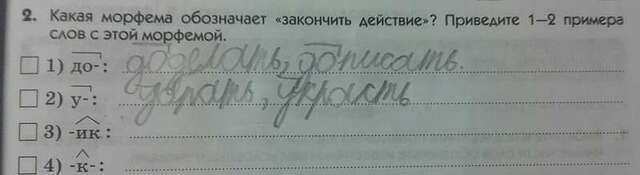 2. Какая морфема обозначает «закончить действие»? Приведите 1—2 примера
слов с этой морфемой.
1) до-: доделать, дописать.
2) у-: убрать, украсть
3) -ик :
4) -к- :